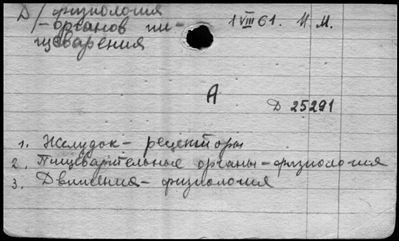 Д/физиология 1 VIII 61. И. М.
/-органов пи-
щеварения
А
Д 25291
1. Желудок - рецепторы
2. Пищеварительные органы - физиология
3. Движения - физиология